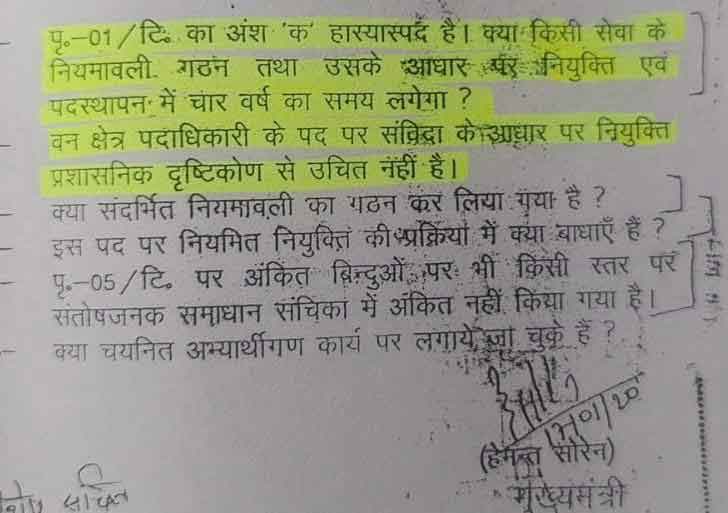 पृ॰-01/टि॰ का अंश 'क' हास्यास्पद है। क्या किसी सेवा के
नियमावली गठन तथा उसके आधार पर नियुक्ति एवं
पदस्थापन में चार वर्ष का समय लगेगा ?
वन क्षेत्र पदाधिकारी के पद पर संविदा के आधार पर नियुक्ति
प्रशासनिक दृष्टिकोण से उचित नहीं है।
क्या संदर्भित नियमावली का गठन कर लिया गया है ?
इस पद पर नियमित नियुक्ति की प्रक्रिया में क्या बाधाएँ हैं ?
पृ॰-05/टि॰ पर अंकित बिन्दुओं पर भी किसी स्तर पर
संतोषजनक समाधान संचिका में अंकित नहीं किया गया है।
क्या चयनित अभ्यार्थीगण कार्य पर लगाये जा चुके हैं ?
(हेमन्त सोरेन)
मुख्यमंत्री
सचिव